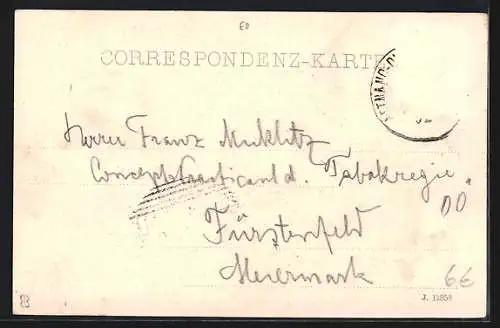 ED
CORRESPONDENZ-KARTE
Herrn Franz Muklitz
Conceptspracticant d. Tabakregie
DD
Fürstenfeld
Steiermark
66
J. 11858